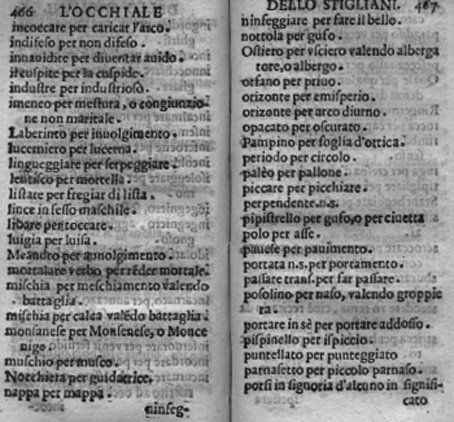 466 L'OCCHIALE
incoccare per caricar l'arco.
indifeso per non difeso.
innauidire per diuentar auido.
il cuspite per la cuspide.
industre per industrioso.
imeneo per mestura, o congiunzio-
ne non maritale.
Laberinto per inuolgimento.
lucerniero per lucerna.
lingueggiare per serpeggiare.
lentisco per mortella.
listare per fregiar di lista.
lince in sesso maschile.
libare per toccare.
luigia per luisa.
Meandro per auuolgimento.
mortalare verbo per rēder mortale.
mischia per meschiamento valendo
battaglia.
mischia per calca valēdo battaglia.
monsanese per Monsenese, o Monce
nigo.
muschio per museo.
Nocchiera per guidatrice.
nappa per mappa.
ninseg-
DELLO STIGLIANI. 467
ninseggiare per fare il bello.
nottola per gufo.
Ostiero per vsciero valendo alberga
tore, o albergo.
orfano per priuo.
orizonte per emisperio.
orizonte per arco diurno.
opacato per oscurato.
Pampino per foglia d'ortica.
periodo per circolo.
palèo per pallone.
piccare per picchiare.
perpendente. n.s.
pipistrello per gufo, o per ciuetta
polo per asse.
pauese per pauimento.
portata n.s. per portamento.
passare trans. per far passare.
posolino per naso, valendo groppie
ra.
portare in sè per portare addosso.
pispinello per ispiccio.
puntellato per punteggiato
parnasetto per piccolo parnaso.
porsi in signoria d'alcuno in signifi-
cato